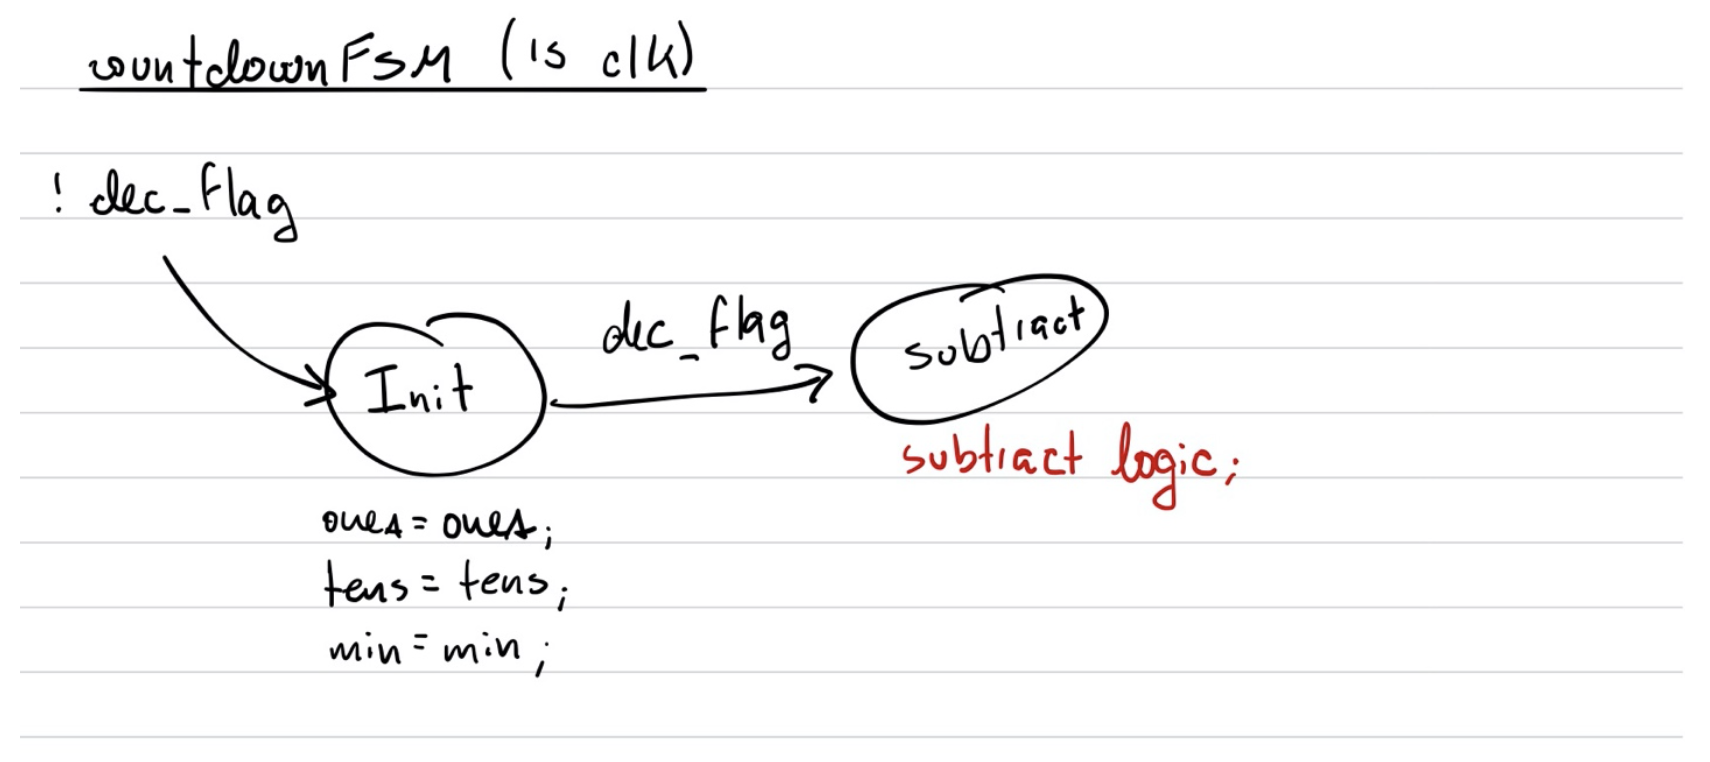 countdownFSM (1s clk)
! dec_flag
dec_flag
Init
subtract
subtract logic;
ones = ones;
tens = tens;
min = min;